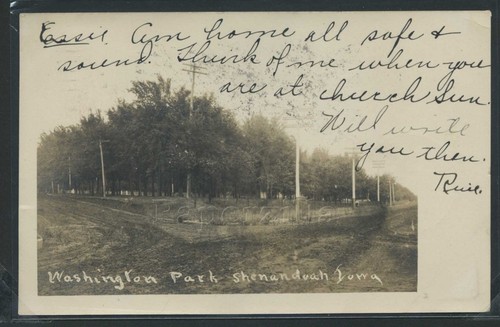 Essie. Am home all safe &
sound. Think of me when you
are at church Sun.
Will write
you then.
Washington Park Shenandoah Iowa